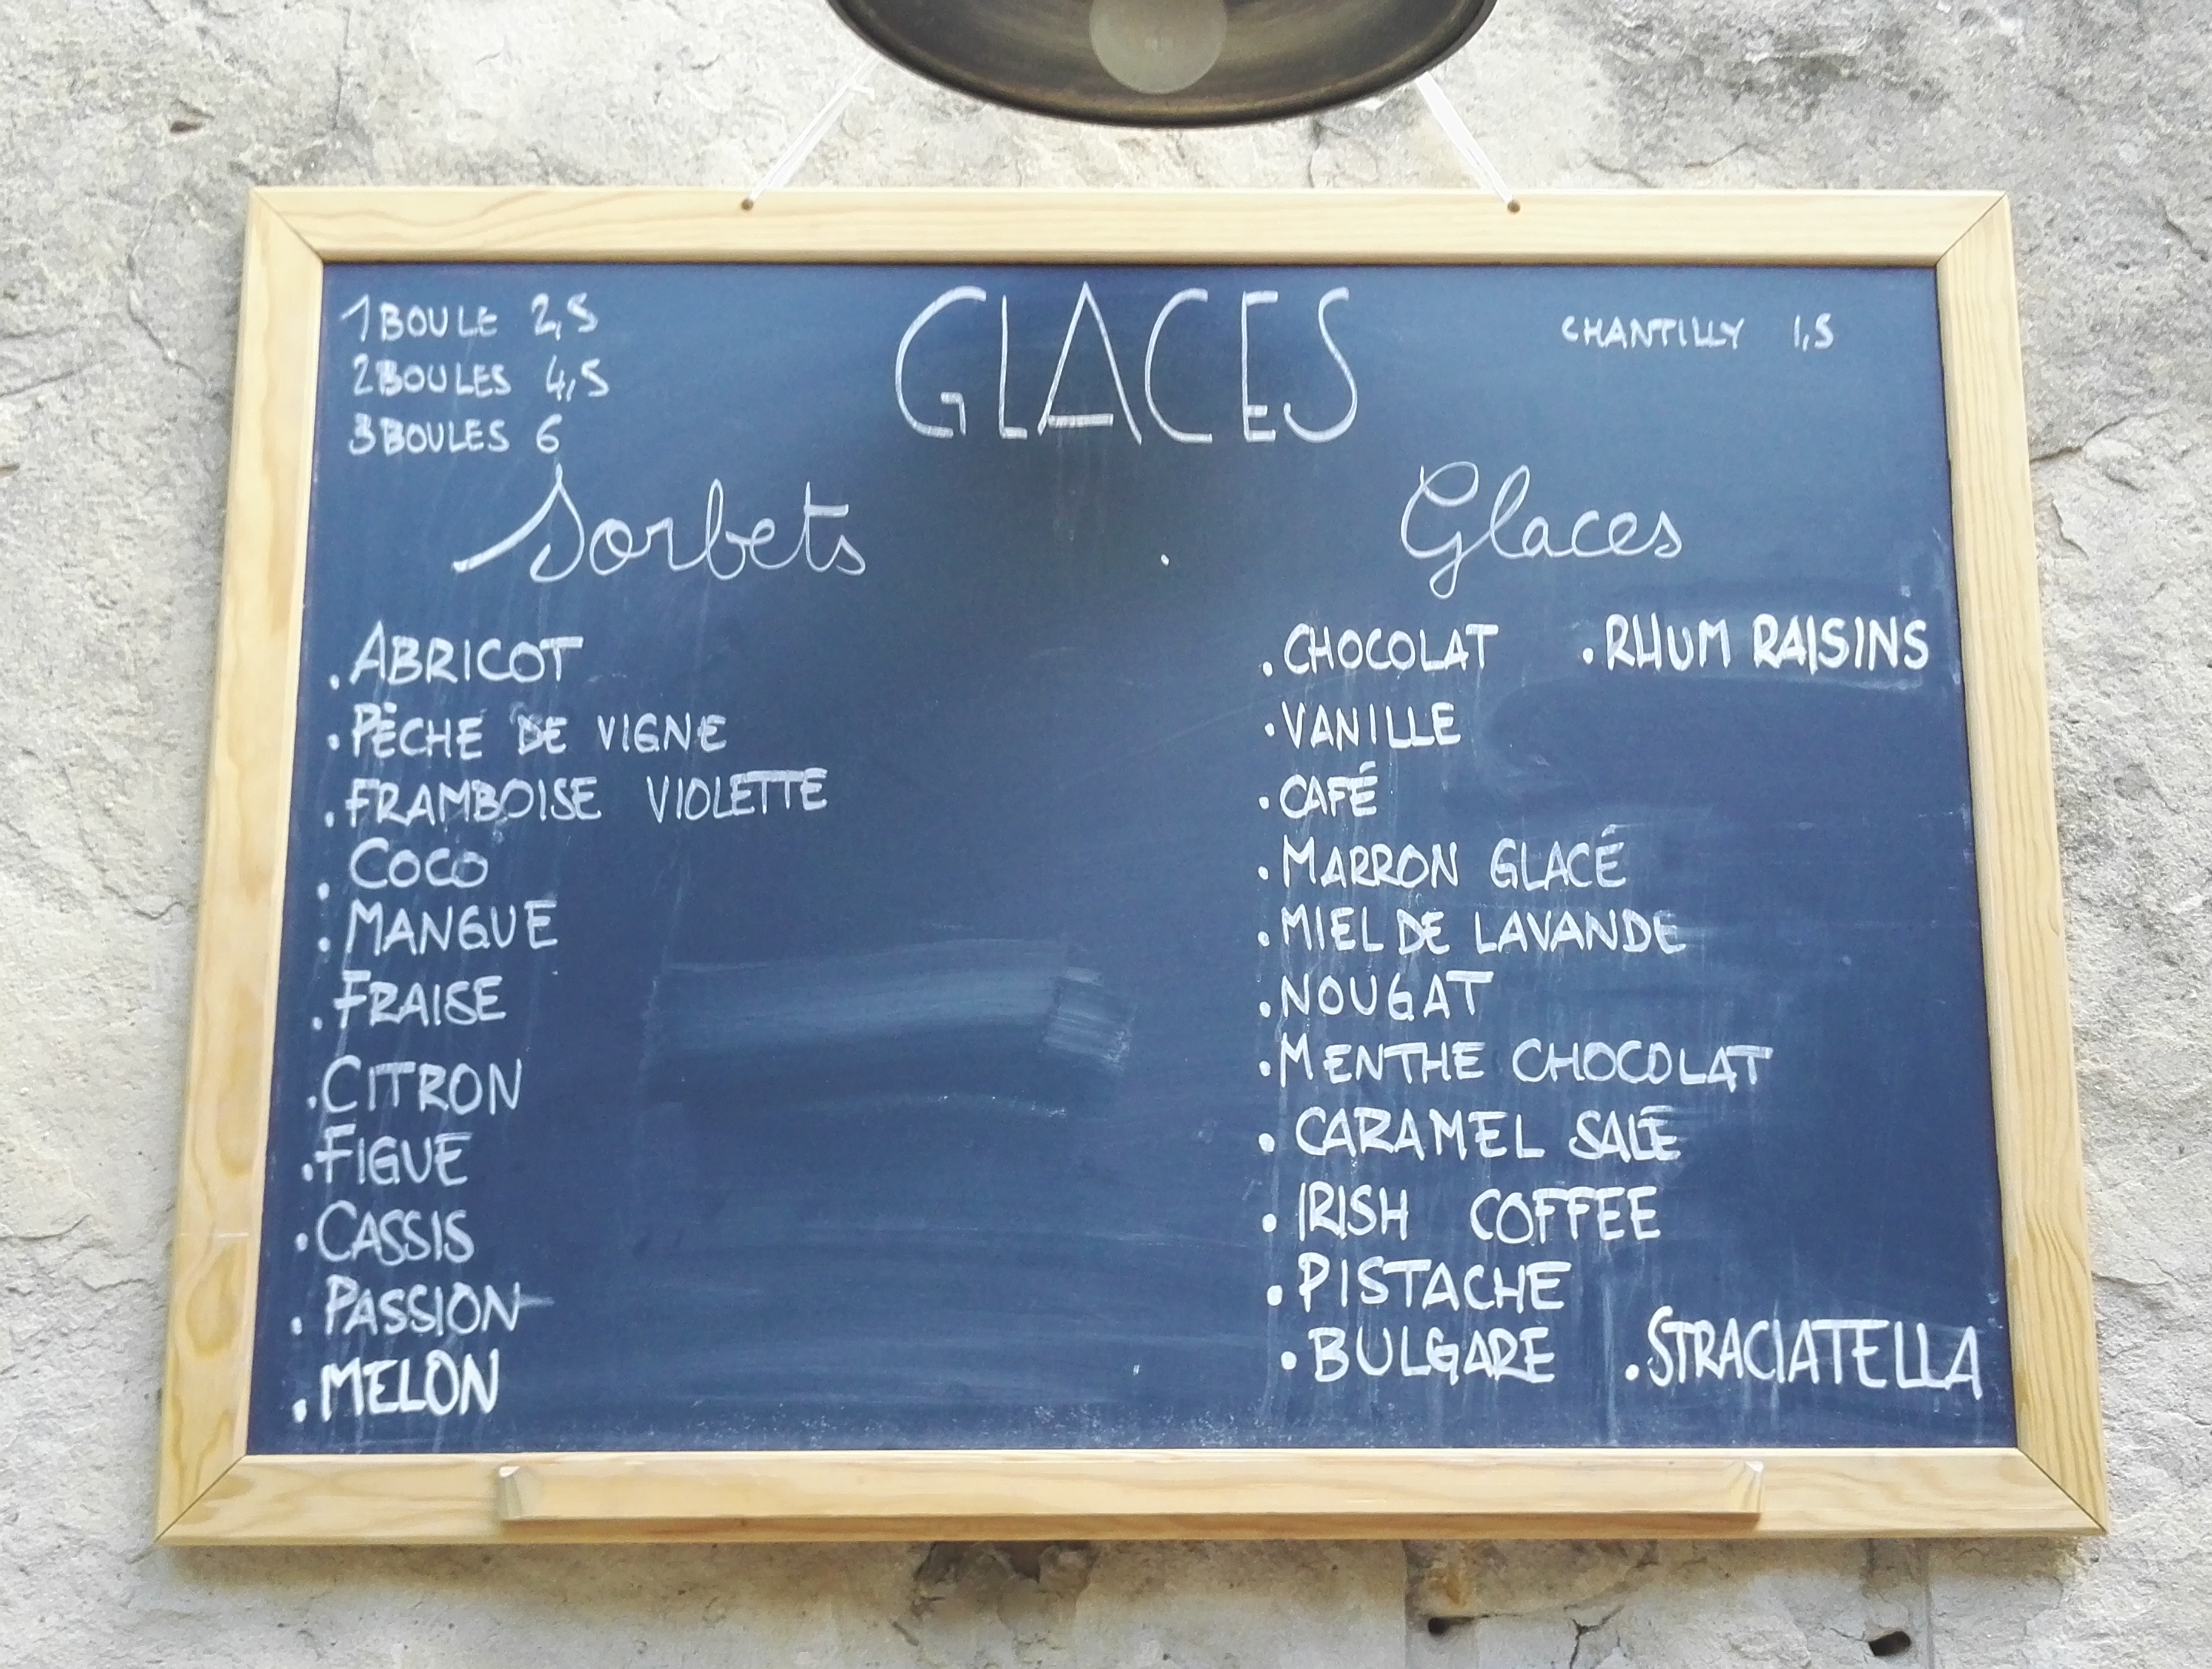 1 BOULE 2,5
2 BOULES 4,5
3 BOULES 6
GLACES
CHANTILLY 1,5
Sorbets
. ABRICOT
. PÊCHE DE VIGNE
. FRAMBOISE VIOLETTE
. COCO
. MANGUE
. FRAISE
. CITRON
. FIGUE
. CASSIS
. PASSION
. MELON
Glaces
. CHOCOLAT . RHUM RAISINS
. VANILLE
. CAFÉ
. MARRON GLACÉ
. MIEL DE LAVANDE
. NOUGAT
. MENTHE CHOCOLAT
. CARAMEL SALÉ
. IRISH COFFEE
. PISTACHE
. BULGARE . STRACIATELLA